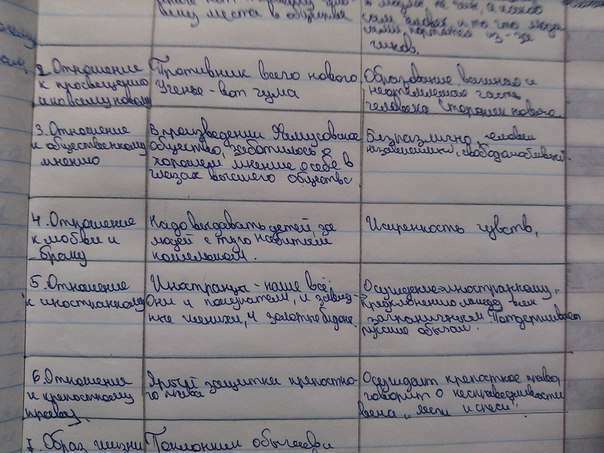 вину места в обществе
2. Отношение
к просвещению
и ко всему новому
Противник всего нового,
Ученье - вот чума
Образование важная и
неотъемлемая часть
человека. Сторонник нового.
3. Отношение
к общественному
мнению
В произведении Фамусовское
общество, заботилось о
хорошем мнение о себе в
глазах высшего общества
Безразлично, человек
независимый, свободолюбивый.
4. Отношение
к любви и
браку
Надо выдавать детей за
людей с туго набитым
кошельком.
Искренность чувств,
5. Отношение
к иностранному
Иностранцы - наше всё,
Они и покупатели, и завид-
ные женихи, и
Осуждение иностранному,
преклонению перед всем
заграничным. Поддерживает
русские обычаи.
6. Отношение
к крепостному
праву
Ярый защитник крепостно-
го права
Осуждает крепостное право,
говорит о несправедливости
века "лести и спеси"
7. Образ жизни
Поклонник обычаев и